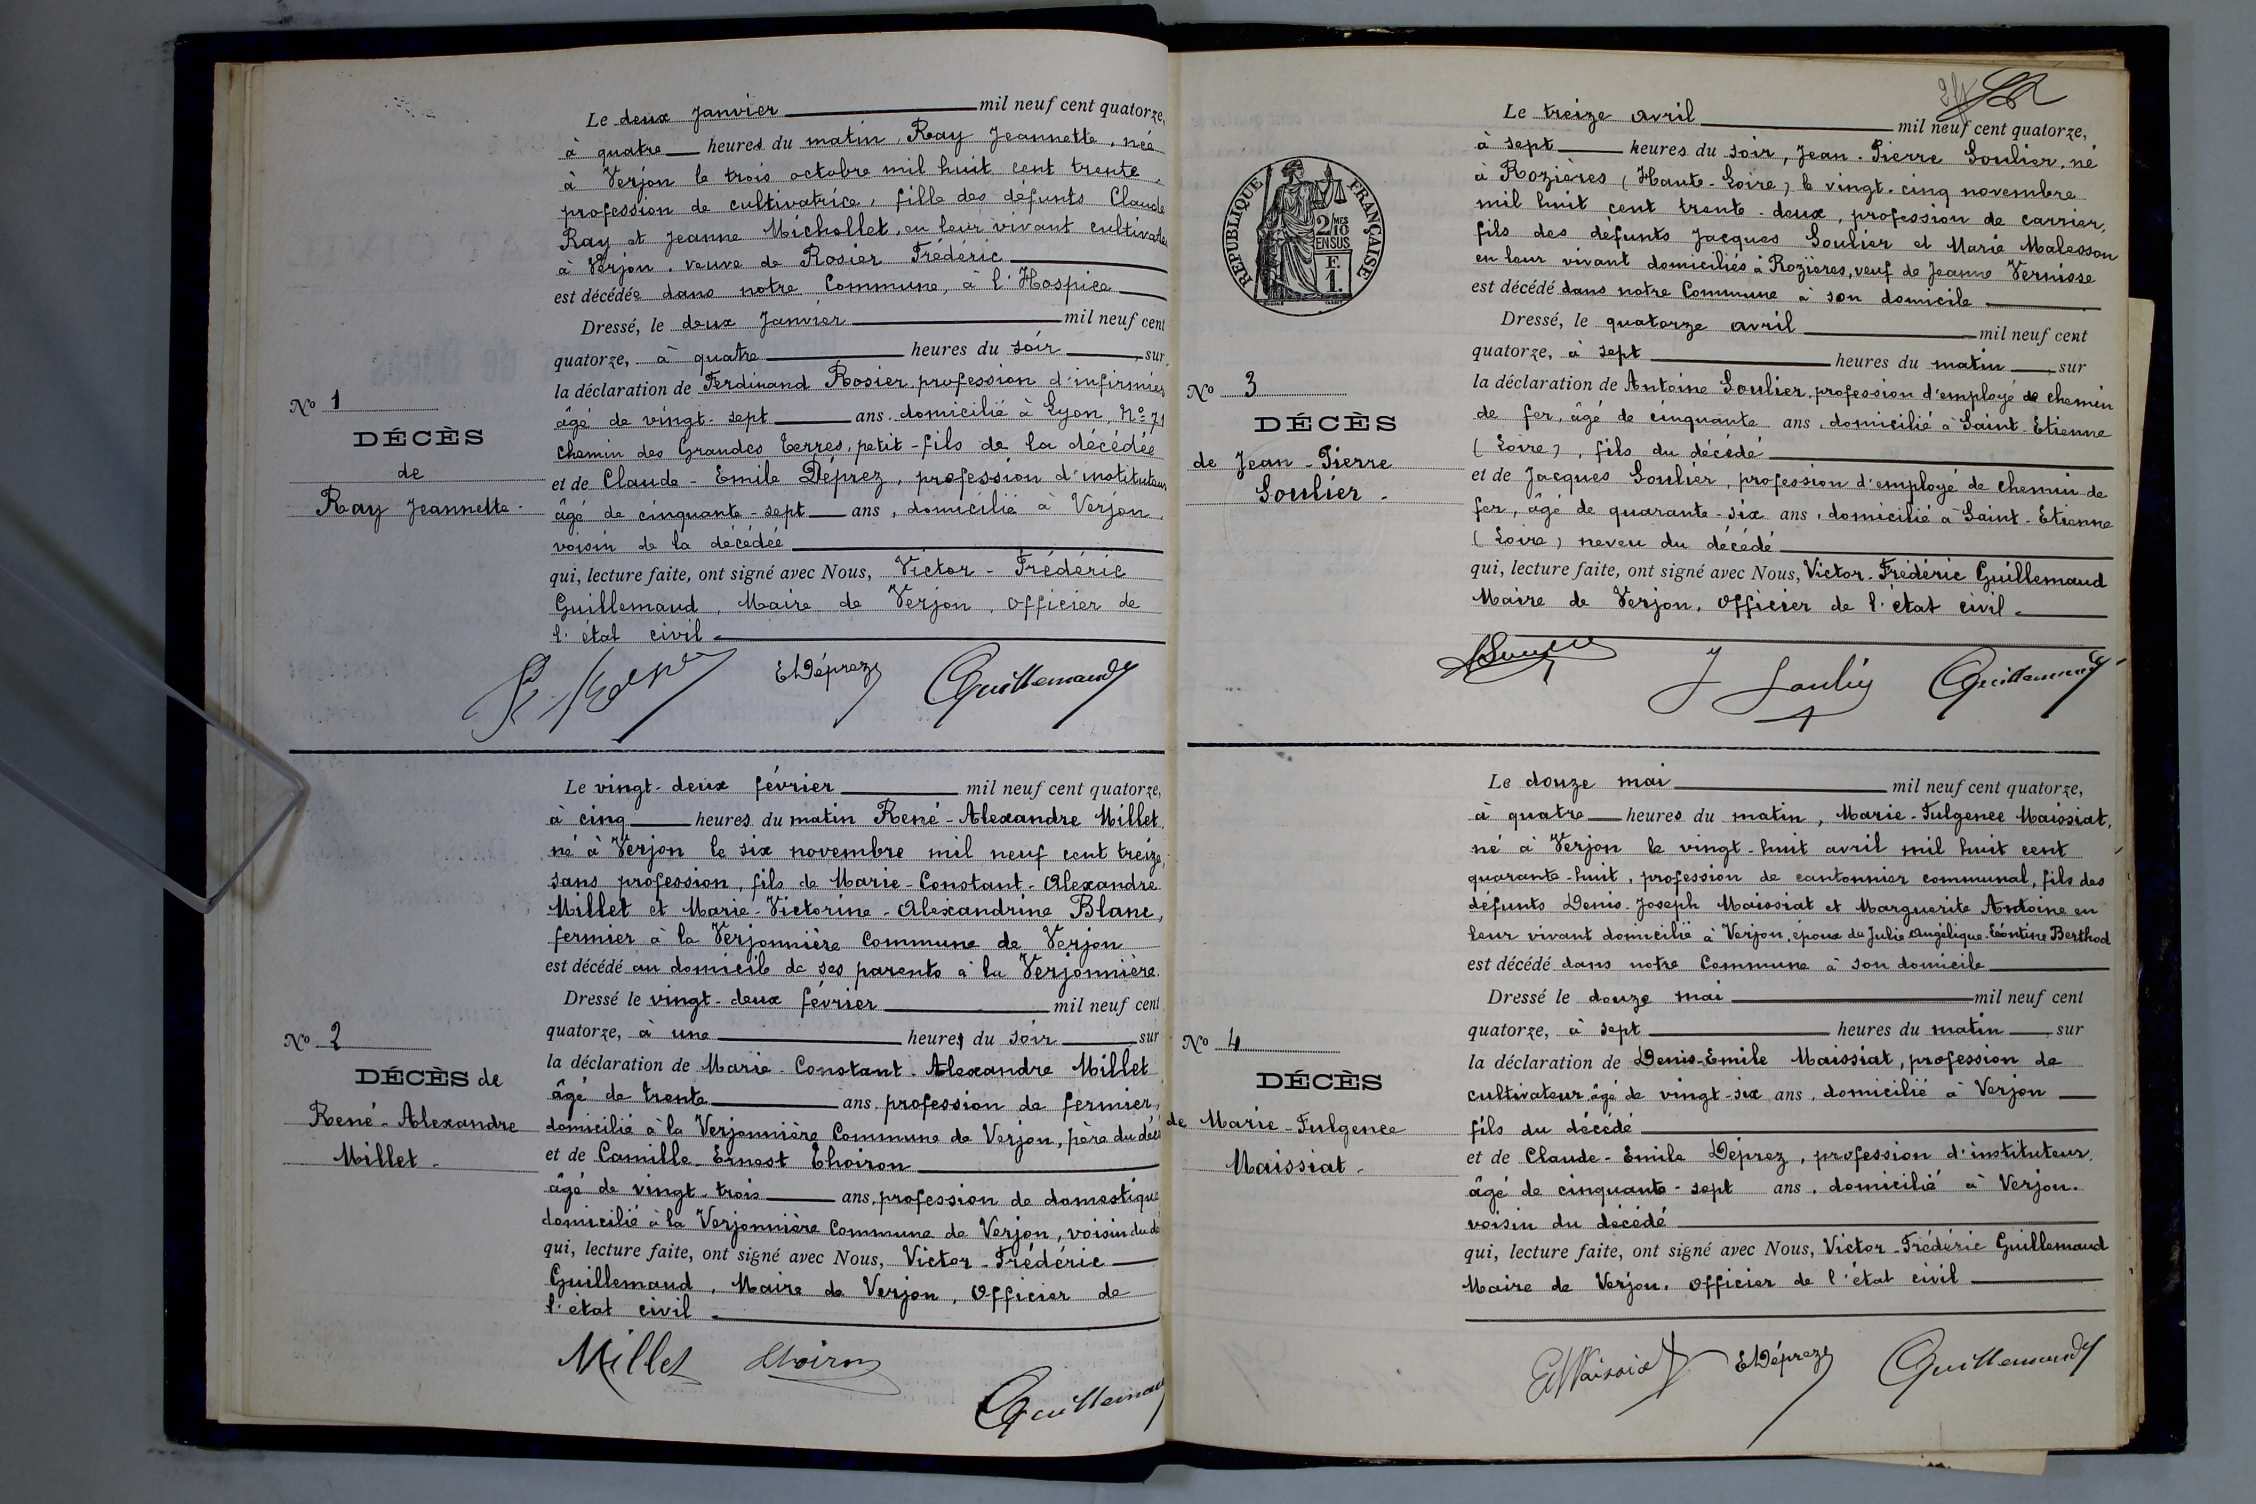 Le deux Janvier mil neuf cent quatorze,
à quatre heures du matin, Ray Jeannette, née
à Verjon le trois octobre mil huit cent trente,
profession de cultivatrice, fille des défunts Claude
Ray et Jeanne Michollet, en leur vivant
à Verjon, veuve de Rosier Frédéric
est décédée dans notre Commune, à l'Hospice
Dressé, le deux Janvier mil neuf cent
quatorze, à quatre heures du soir, sur
la déclaration de Ferdinand Rosier profession d'infirmier
âgé de vingt-sept ans, domicilié à Lyon, No 71
chemin des Grandes terres, petit-fils de la décédée
et de Claude-Emile Déprez, profession d'instituteur
âgé de cinquante-sept ans, domicilié à Verjon,
voisin de la décédée
qui, lecture faite, ont signé avec Nous, Victor-Frédéric
Guillemaud, Maire de Verjon, officier de
l'état civil
No 1
DÉCÈS
de
Ray Jeannette.
EDéprez Guillemaud
Le vingt-deux février mil neuf cent quatorze,
à cinq heures du matin René-Alexandre Millet,
né à Verjon le six novembre mil neuf cent treize,
sans profession, fils de Marie-Constant-Alexandre
Millet et Marie-Victorine-Alexandrine Blanc,
fermier à la Verjonnière Commune de Verjon
est décédé au domicile de ses parents à la Verjonnière.
Dressé le vingt-deux février mil neuf cent
quatorze, à une heures du soir, sur
la déclaration de Marie-Constant-Alexandre Millet
âgé de trente ans, profession de fermier,
domicilié à la Verjonnière Commune de Verjon, père du
et de Camille-Ernest Thoiron
âgé de vingt-trois ans, profession de domestique
domicilié à la Verjonnière Commune de Verjon, voisin du
qui, lecture faite, ont signé avec Nous, Victor-Frédéric
Guillemaud, Maire de Verjon, officier de
l'état civil
No 2
DÉCÈS de
René-Alexandre
Millet.
Millet Thoiron
Guillemaud
RÉPUBLIQUE FRANÇAISE
2/10 MES
EN SUS
F.
1.
Le treize avril mil neuf cent quatorze,
à sept heures du soir, Jean-Pierre Soulier, né
à Rozières (Haute-Loire) le vingt-cinq novembre
mil huit cent trente-deux, profession de carrier,
fils des défunts Jacques Soulier et Marie Malesson
en leur vivant domiciliés à Rozières, veuf de Jeanne Vernisse
est décédé dans notre Commune à son domicile
Dressé, le quatorze avril mil neuf cent
quatorze, à sept heures du matin, sur
la déclaration de Antoine Soulier, profession d'employé de chemin
de fer, âgé de cinquante ans, domicilié à Saint-Etienne
(Loire), fils du décédé
et de Jacques Soulier, profession d'employé de chemin de
fer, âgé de quarante-six ans, domicilié à Saint-Etienne
(Loire) neveu du décédé
qui, lecture faite, ont signé avec Nous, Victor-Frédéric Guillemaud
Maire de Verjon, officier de l'état civil
No 3
DÉCÈS
de Jean-Pierre
Soulier.
J Soulier Guillemaud
Le douze mai mil neuf cent quatorze,
à quatre heures du matin, Marie-Fulgence Maissiat,
né à Verjon le vingt-huit avril mil huit cent
quarante-huit, profession de cantonnier communal, fils des
défunts Denis-Joseph Maissiat et Marguerite Antoine en
leur vivant domicilié à Verjon, époux de Julie Angélique-Léontine Berthod
est décédé dans notre Commune à son domicile
Dressé le douze mai mil neuf cent
quatorze, à sept heures du matin, sur
la déclaration de Denis-Emile Maissiat, profession de
cultivateur âgé de vingt-six ans, domicilié à Verjon
fils du décédé
et de Claude-Emile Déprez, profession d'instituteur,
âgé de cinquante-sept ans, domicilié à Verjon.
voisin du décédé
qui, lecture faite, ont signé avec Nous, Victor-Frédéric Guillemaud
Maire de Verjon, officier de l'état civil
No 4
DÉCÈS
de Marie-Fulgence
Maissiat.
EMaissiat EDéprez Guillemaud